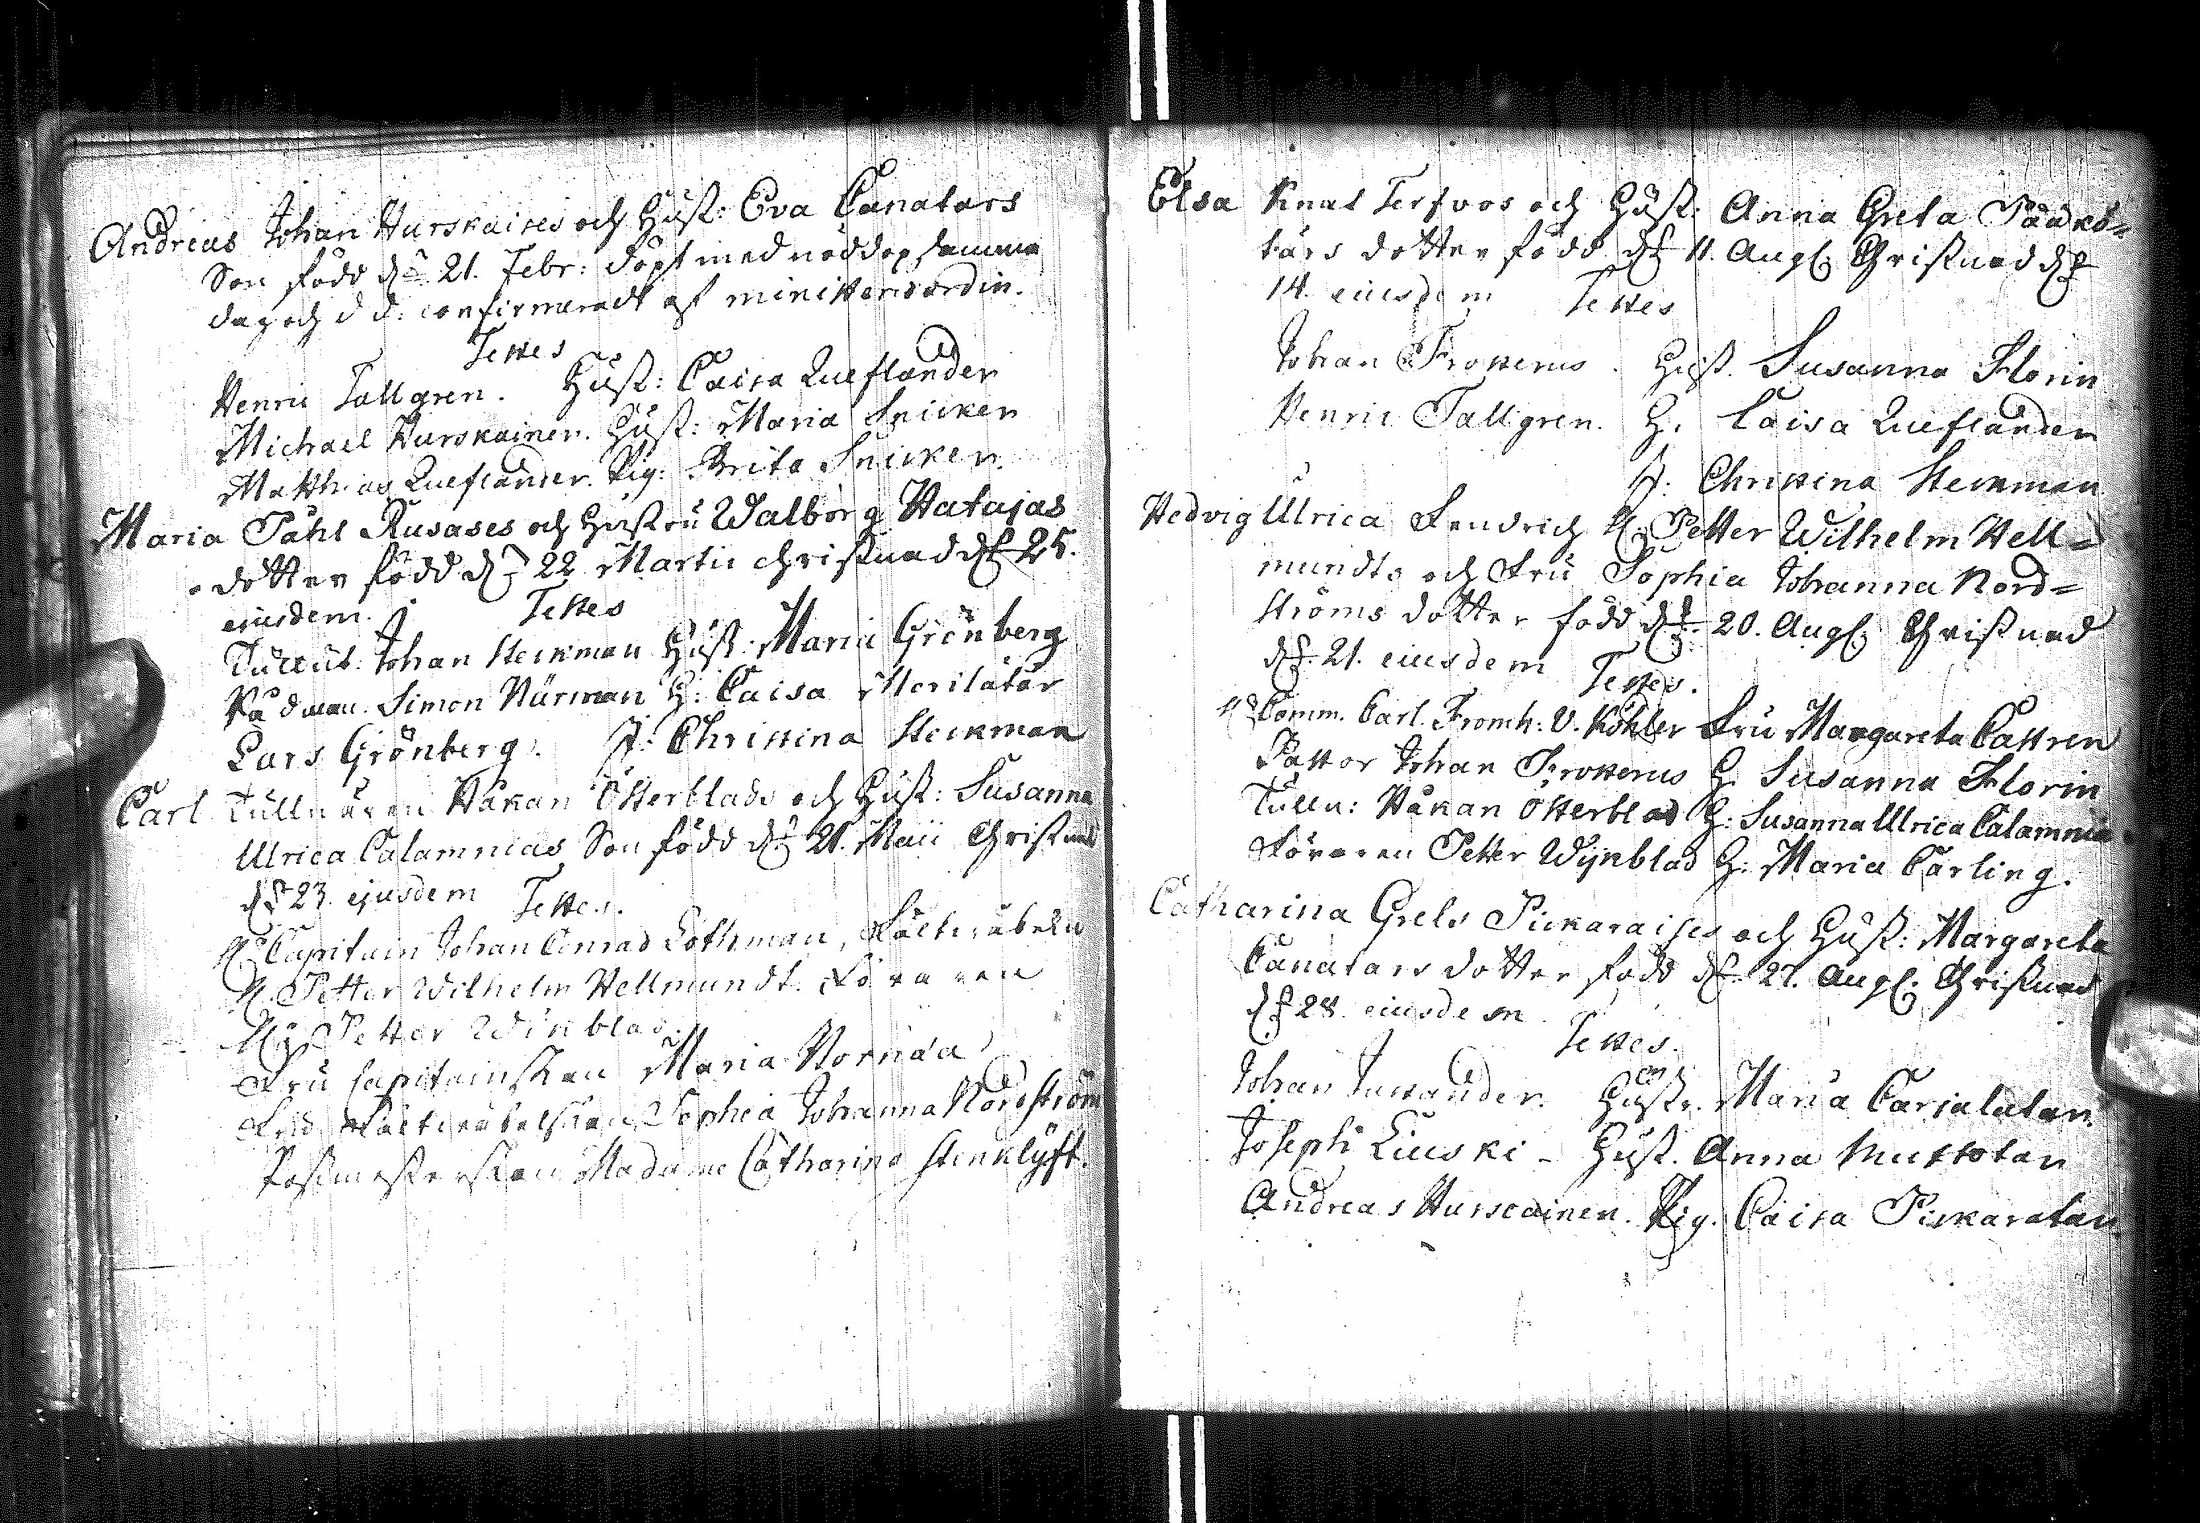 Andreas Johan Hurskaises och Hust: Eva Canatars
Son född dn 21. Febr: döpt med nöddop samma
dag och d d: confirmeradt af minist ordin.
Testes
Henric Tallgren. Hust: Caisa Luuflander
Michael Hurskainen. Hust: Maria Snicker
Matthias Luuflander. Pig: Brita Snicker.
Maria Påhl Rusases och Hustru Walborg Hatajas
dotter född d 22 Martii christnad d 25.
eiusdem. Testes
Johan Steckman Hust: Maria Grönberg
Rådman. Simon Nürman H: Caisa
Lars Grönberg. J: Christina Steckman
Carl Tullnären Håkan Österblads och Hust: Susanna
Ulrica Calamnias Son född d 21. Maii Christnad
d 23. ejusdem Testes.
Hr Capitain Johan Conrad Lothman, Fältwäbeln
H. Petter Wilhelm Hellmundt. Föraren
Petter Winblad.
Fru Capitainskan Maria Hornæa
Fru Fältwäbelskan Sophia Johanna Nordström
Postmästerskan Madame Catharina Stenklyft.
Elsa Knut Terfvos och Hust. Anna Greta Pääkö=
tärs dotter född d 11. Aug. Christnad d
14. eiusdem Testes
Johan Frosterus. Hust. Susanna Florin
Henric Tallgren. H. Caisa Luuflander
J: Christina Steckman
Hedvig Ulrica Fendrich H. Petter Wilhelm Hell=
mundts och Fru Sophia Johanna Nord=
ströms dotter född d 20. Aug. Christnad
d 21. eiusdem Testes.
Hr Comm. Carl. Fromh: V. Köhler Fru Margareta Castren
Pastor Johan Frosterus H. Susanna Florin
Tulln: Håkan Österblad H: Susanna Ulrica Calamnia
Föraren Petter Wijnblad H: Maria Carling.
Catharina Grels Pickaraises och Hust: Margareta
Canatars dotter född d 27. Aug. Christnad
d 28. eiusdem
Testes.
Johan Hust. Maria Carjalatar.
Joseph Liuski - Hust. Anna Mustotar
Andreas Hurscainen. Pig. Caisa Pickaratar